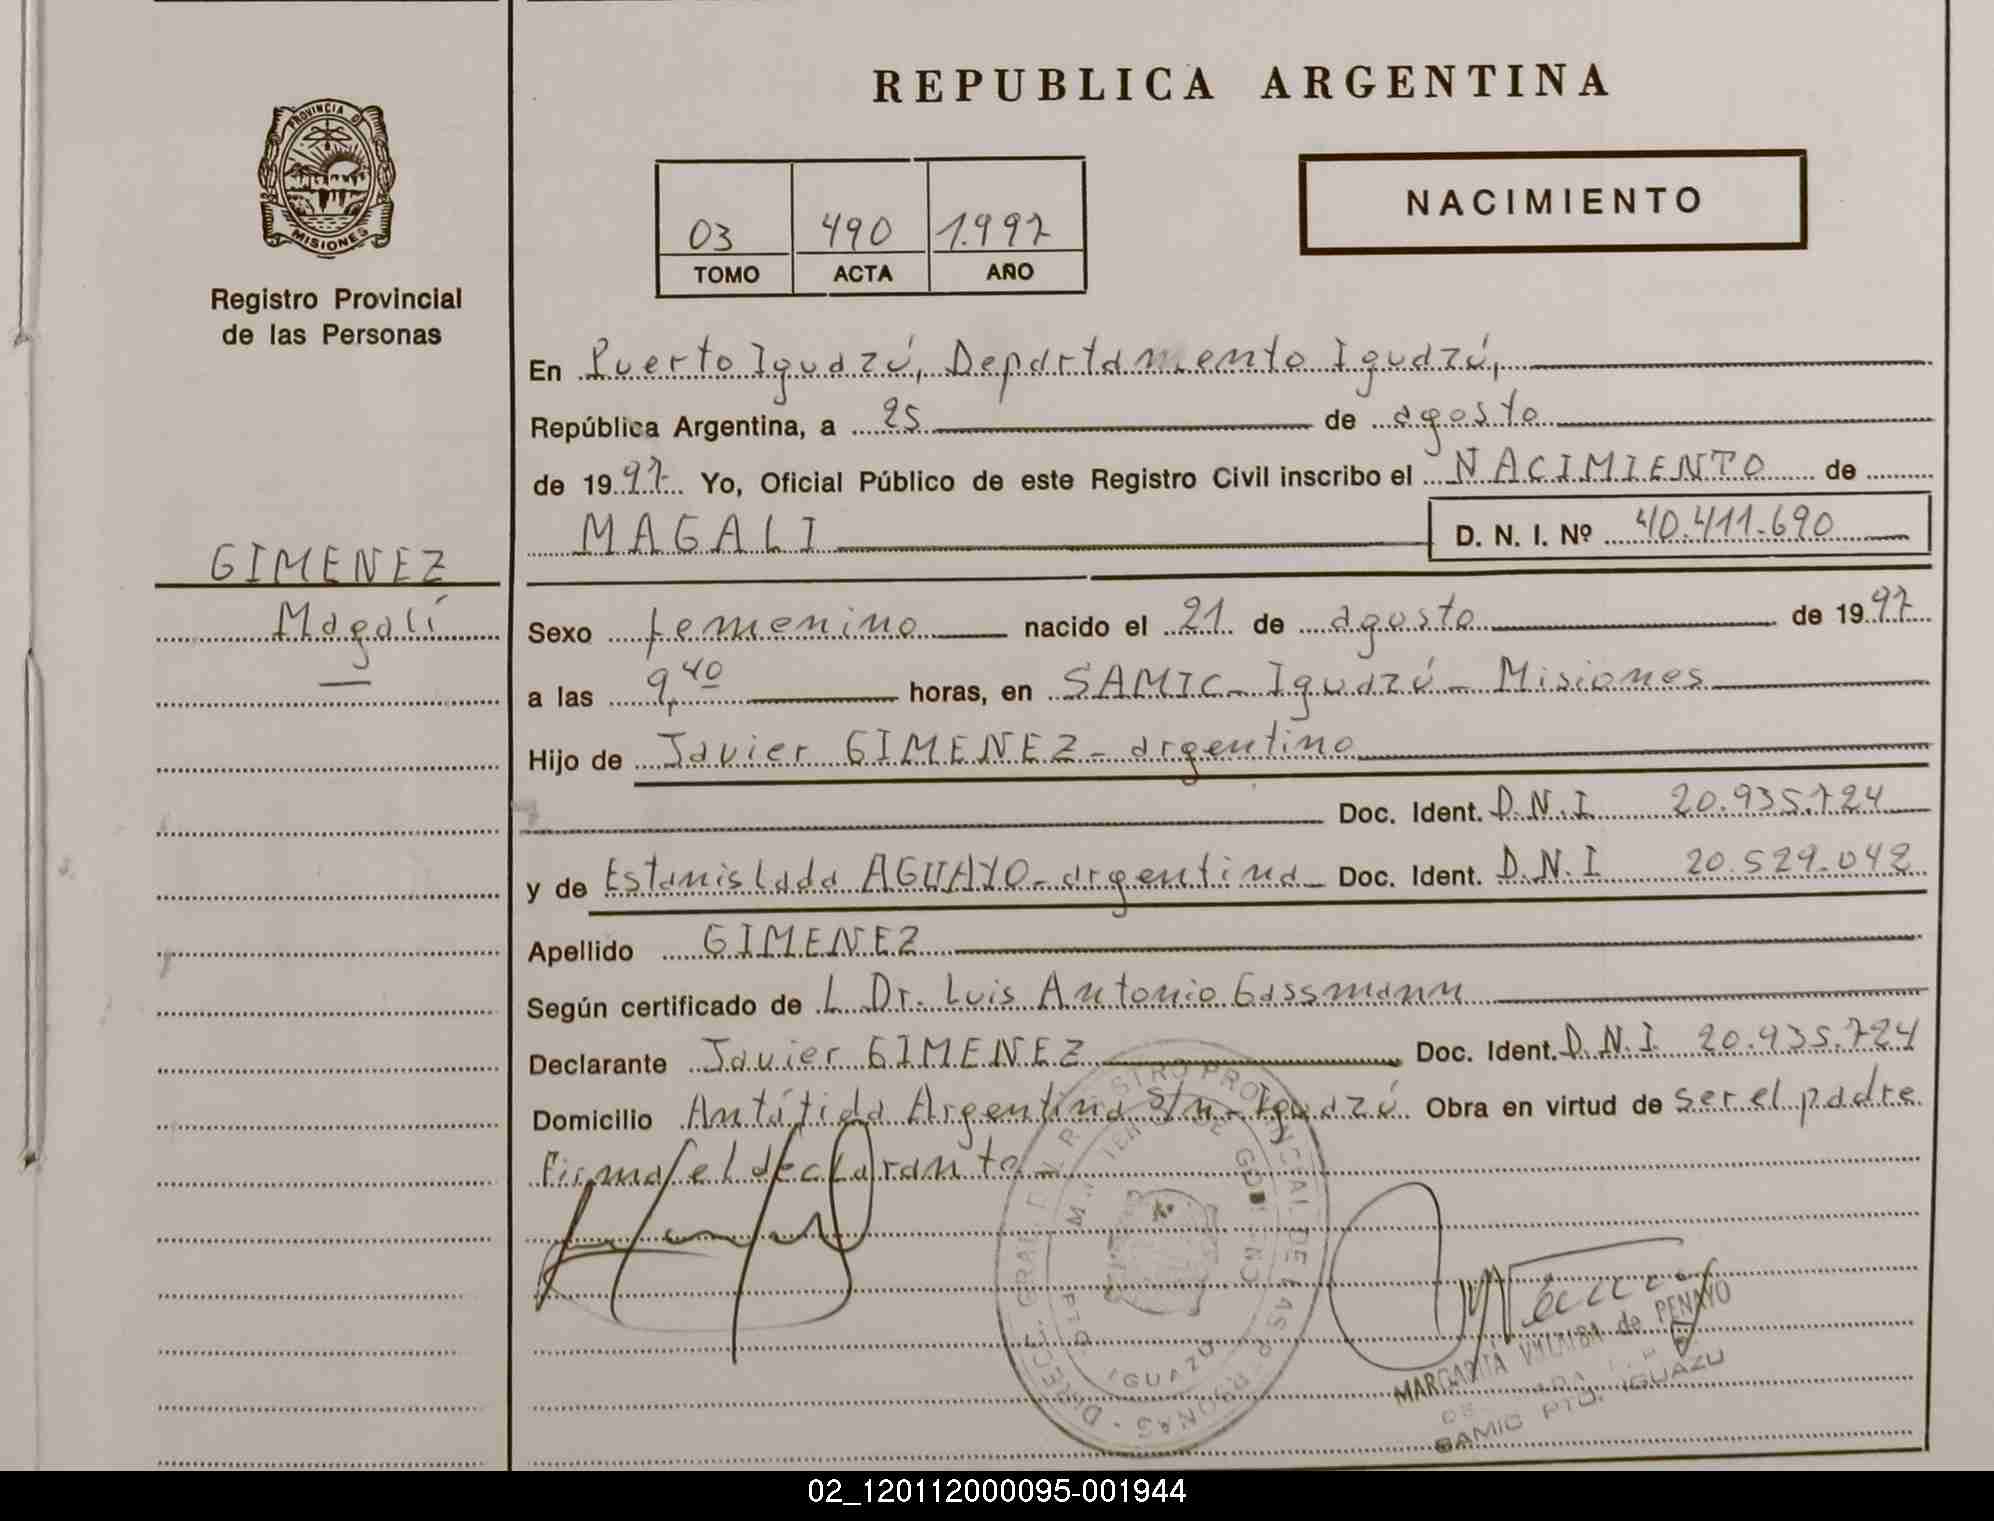 REPUBLICA ARGENTINA
PROVINCIA D
MISIONES
Registro Provincial
de las Personas
NACIMIENTO
03 490 1.997
TOMO ACTA AÑO
GIMENEZ
Magalí
En Puerto Iguazú, Departamento Iguazú,
República Argentina, a 25 de agosto
de 1997 Yo, Oficial Público de este Registro Civil inscribo el NACIMIENTO de
MAGALI D. N. I. Nº 40.411.690
Sexo femenino nacido el 21 de agosto de 1997
a las 9,40 horas, en SAMIC - Iguazú - Misiones
Hijo de Javier GIMENEZ - argentino
Doc. Ident. D.N.I 20.935.724
y de Estanislada AGUAYO - argentina - Doc. Ident. D.N.I 20.529.042
Apellido GIMENEZ
Según certificado de L Dr. Luis Antonio Gassmann
Declarante Javier GIMENEZ Doc. Ident. D.N.I. 20.935.724
Domicilio Antátida Argentina S/n - Iguazú. Obra en virtud de ser el padre
Firma el declarante -
IGUAZU
MARGARITA VILLALBA de PENAYO
SAMIC PTO. IGUAZU
02_120112000095-001944